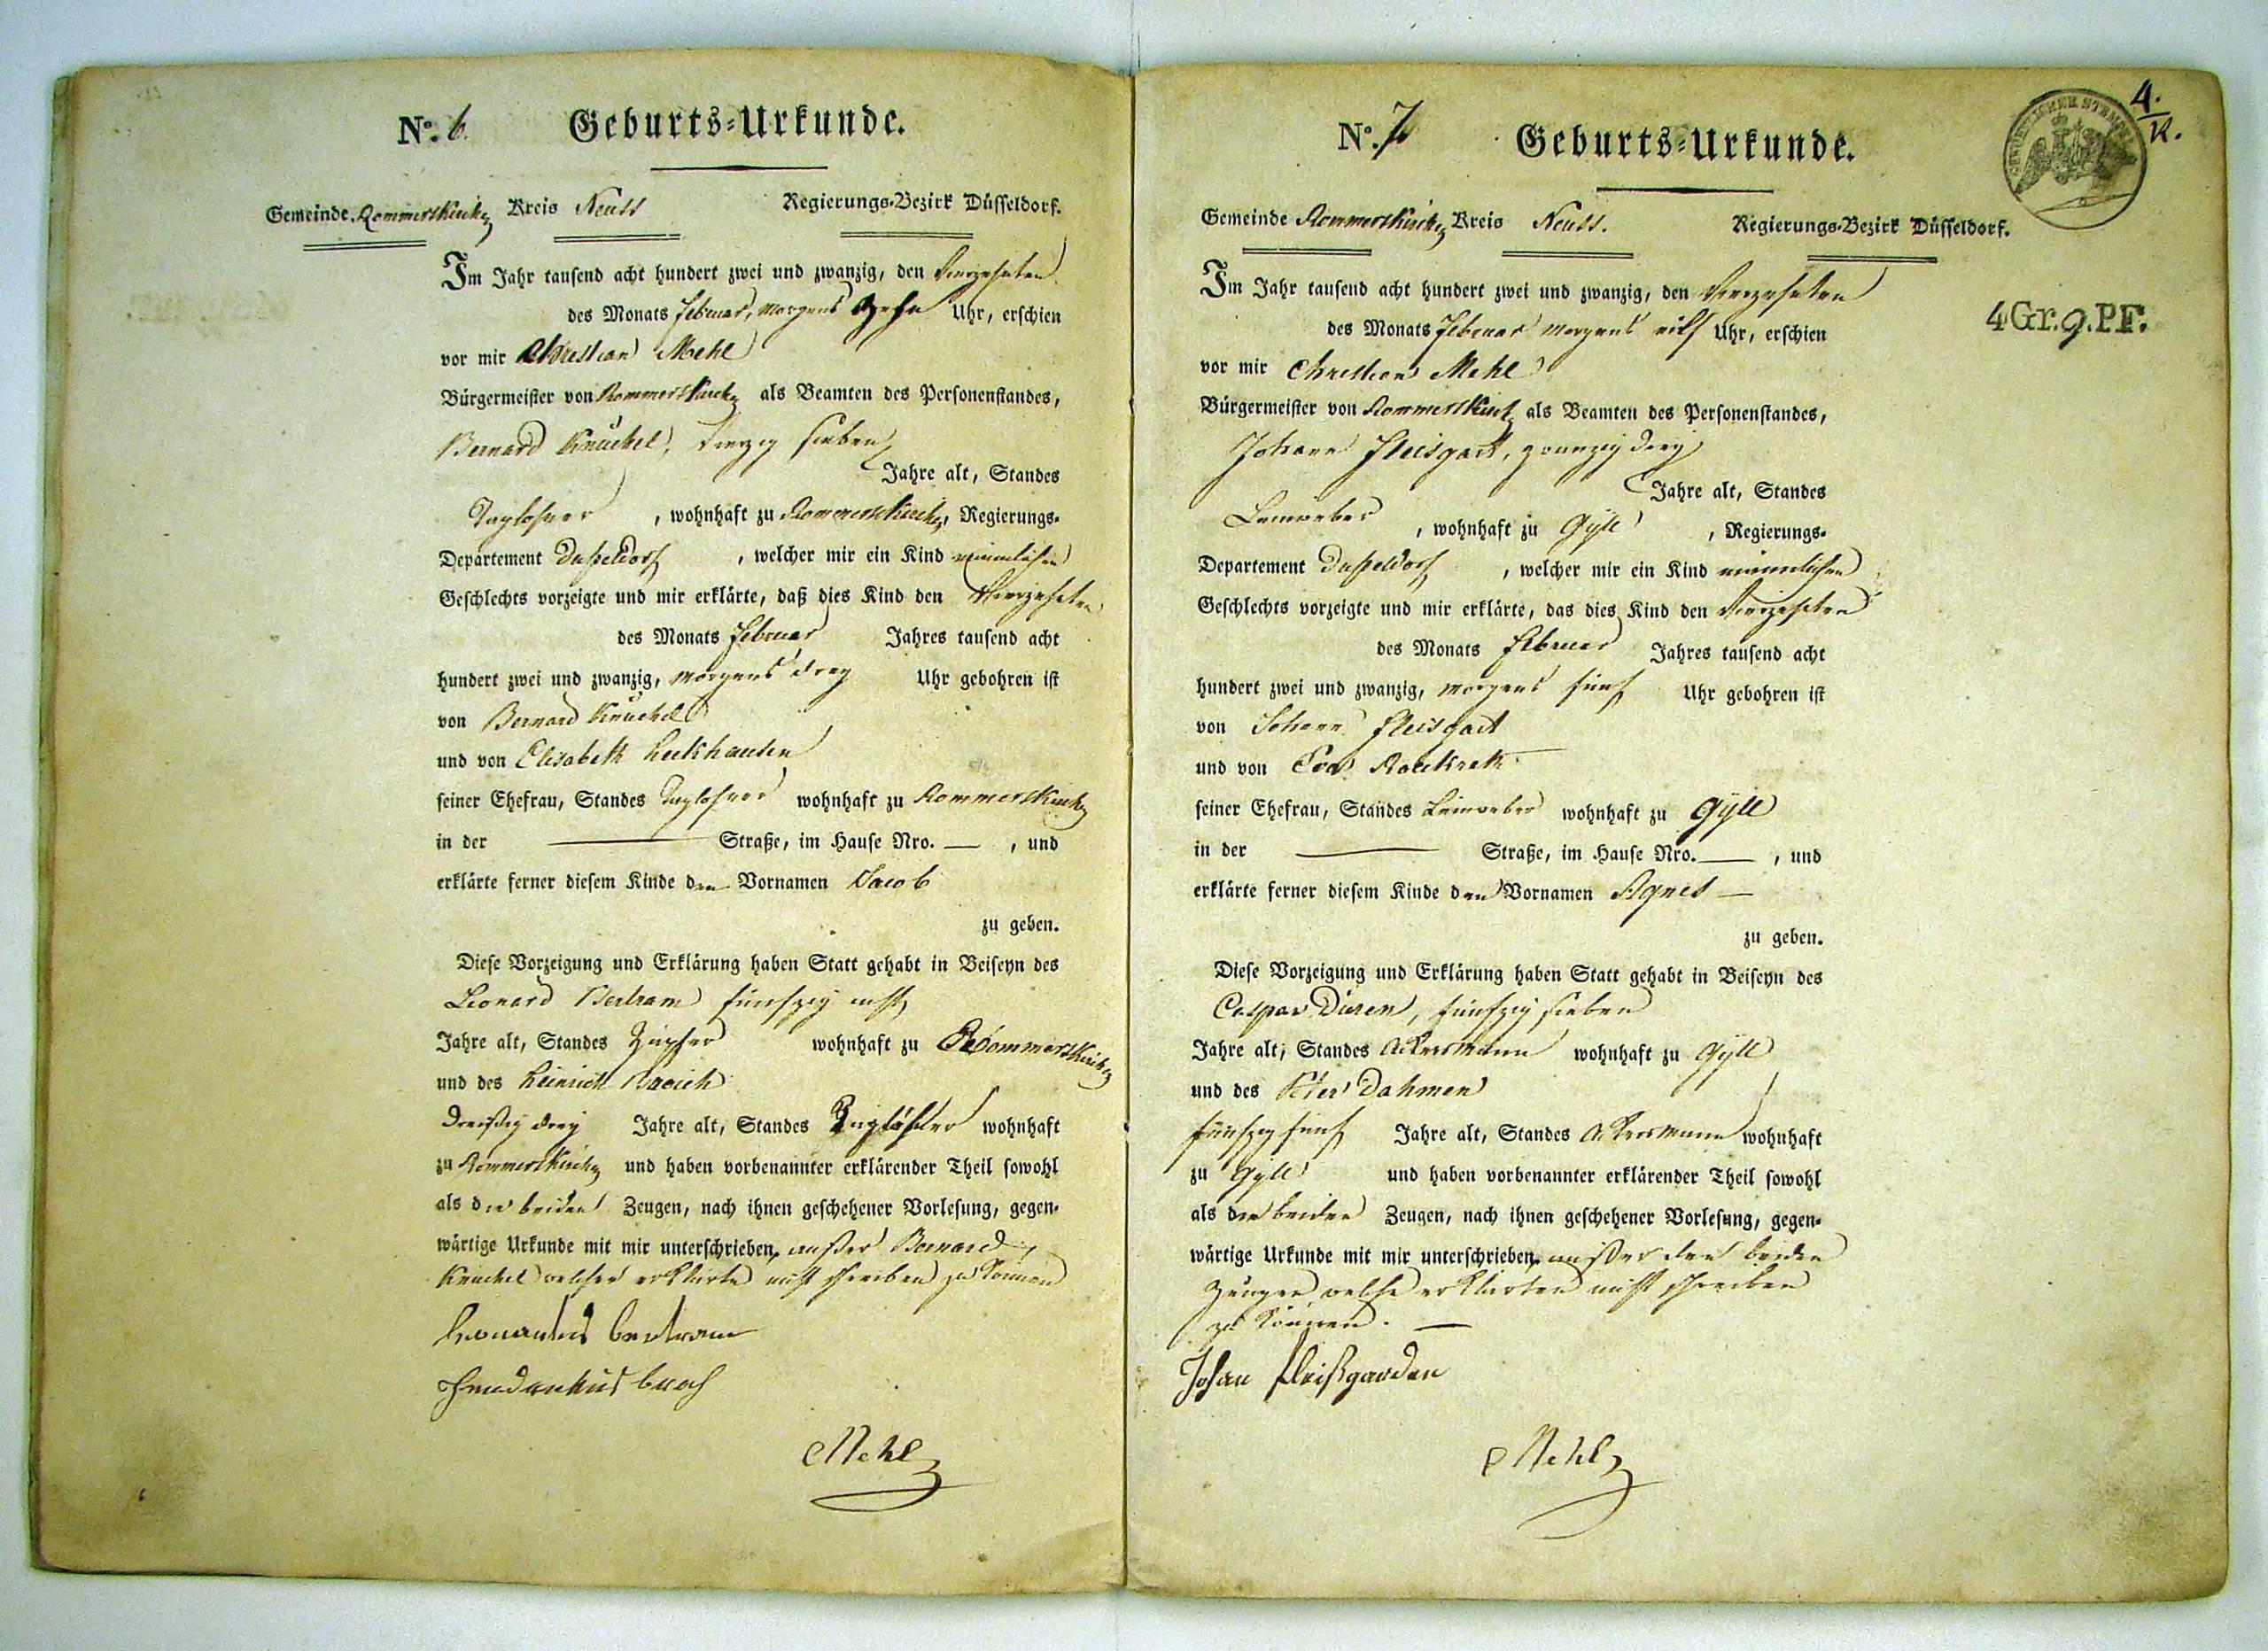 No. 6. Geburts-Urkunde.
Gemeinde Rommerskirchen Kreis Neuss Regierungs-Bezirk Düsseldorf.
Im Jahr tausend acht hundert zwei und zwanzig, den Vierzehnten
des Monats Februar, morgens Zehn Uhr, erschien
vor mir Christian Mehl
Bürgermeister von Rommerskirchen als Beamten des Personenstandes,
Bernard Knüchel, Vierzig sieben
Jahre alt, Standes
Taglohner, wohnhaft zu Rommerskirchen, Regierungs-
Departement Dußeldorf, welcher mir ein Kind männlichen
Geschlechts vorzeigte und mir erklärte, daß dies Kind den Vierzehnten
des Monats Februar Jahres tausend acht
hundert zwei und zwanzig, morgens drey Uhr gebohren ist
von Bernard Knüchel
und von Elisabeth
seiner Ehefrau, Standes Taglohner wohnhaft zu Rommerskirchen
in der Straße, im Hause Nro. , und
erklärte ferner diesem Kinde den Vornamen Jacob
zu geben.
Diese Vorzeigung und Erklärung haben Statt gehabt in Beiseyn des
Leonard Bertram fünfzig acht
Jahre alt, Standes wohnhaft zu Rommerskirchen
und des Heinrich
dreißig drey Jahre alt, Standes wohnhaft
zu Rommerskirchen und haben vorbenannter erklärender Theil sowohl
als die beiden Zeugen, nach ihnen geschehener Vorlesung, gegen-
wärtige Urkunde mit mir unterschrieben, außer Bernard
Knüchel welcher erklärte nicht schreiben zu können
bertram
Mehl
No. 7 Geburts-Urkunde.
4.
K.
4Gr.9.PF.
Gemeinde Rommerskirchen Kreis Neuss. Regierungs-Bezirk Düsseldorf.
Im Jahr tausend acht hundert zwei und zwanzig, den Vierzehnten
des Monats Februar morgens eilf Uhr, erschien
vor mir Christian Mehl
Bürgermeister von Rommerskirchen als Beamten des Personenstandes,
Johann Fleisgart, zwanzig drey
Jahre alt, Standes
Leinweber, wohnhaft zu Gyll, Regierungs-
Departement Dußeldorf, welcher mir ein Kind männlichen
Geschlechts vorzeigte und mir erklärte, das dies Kind den Vierzehnten
des Monats Februar Jahres tausend acht
hundert zwei und zwanzig, morgens fünf Uhr gebohren ist
von Johann Fleisgart
und von Eva
seiner Ehefrau, Standes Leinweber wohnhaft zu Gyll
in der Straße, im Hause Nro. , und
erklärte ferner diesem Kinde den Vornamen Agnes
zu geben.
Diese Vorzeigung und Erklärung haben Statt gehabt in Beiseyn des
Caspar Düren, fünfzig sieben
Jahre alt, Standes Ackersmann wohnhaft zu Gyll
und des Peter Dahmen
fünfzig fünf Jahre alt, Standes Ackersmann wohnhaft
zu Gyll und haben vorbenannter erklärender Theil sowohl
als die beiden Zeugen, nach ihnen geschehener Vorlesung, gegen-
wärtige Urkunde mit mir unterschrieben, außer den beiden
Zeugen welche erklärten nicht schreiben
zu können.
Johan fleißgarden
Mehl